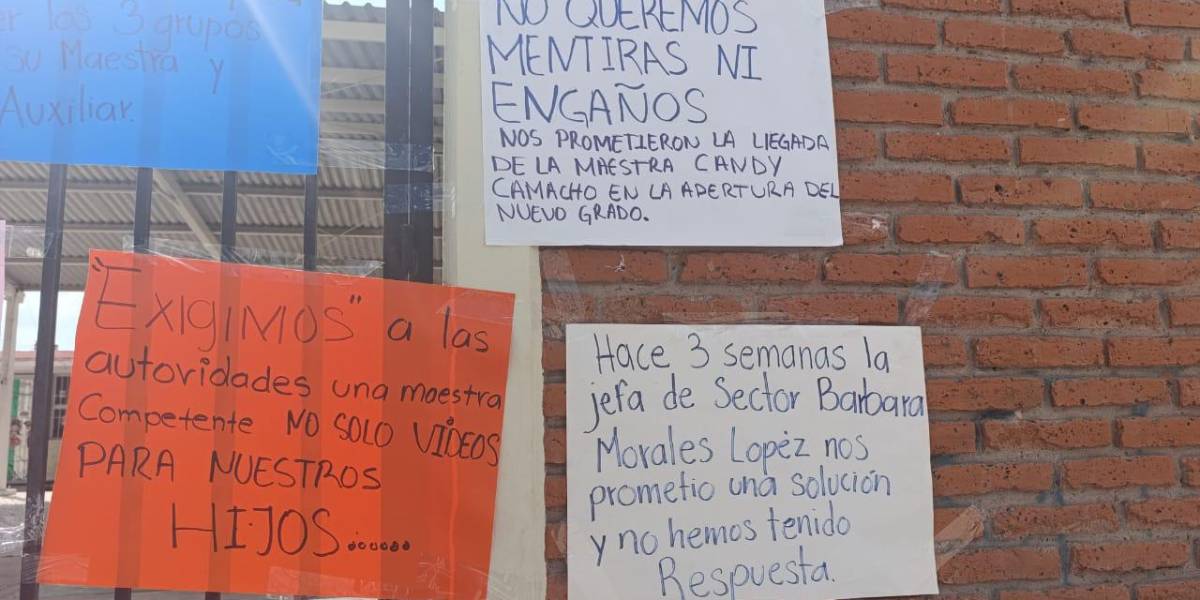 er los 3 grupos
su Maestra y
Auxiliar.
NO QUEREMOS
MENTIRAS NI
ENGAÑOS
NOS PROMETIERON LA LLEGADA
DE LA MAESTRA CANDY
CAMACHO EN LA APERTURA DEL
NUEVO GRADO.
"EXIGIMOS" a las
autoridades una maestra
Competente NO SOLO VIDEOS
PARA NUESTROS
HIJOS......
Hace 3 semanas la
jefa de Sector Barbara
Morales Lopéz nos
prometio una solución
y no hemos tenido
Respuesta.